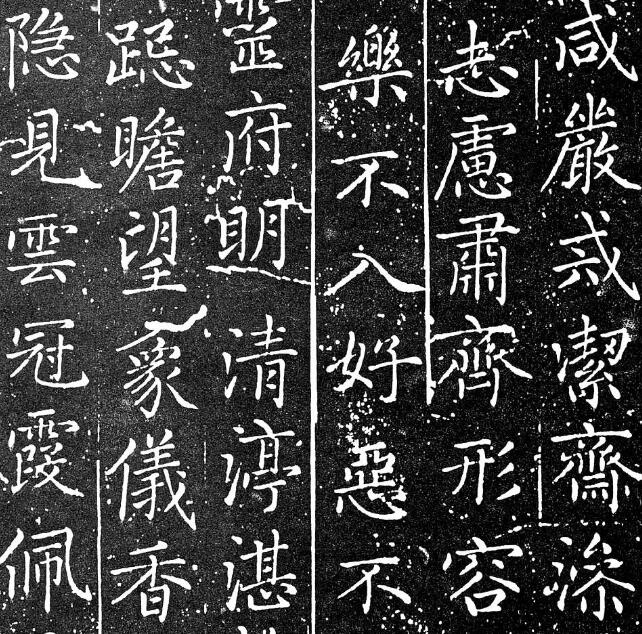 咸嚴戒潔齋滌
志慮肅齊形容
樂不入好惡不
靈府明清渟湛
跽瞻望象儀香
隱見雲冠霞佩